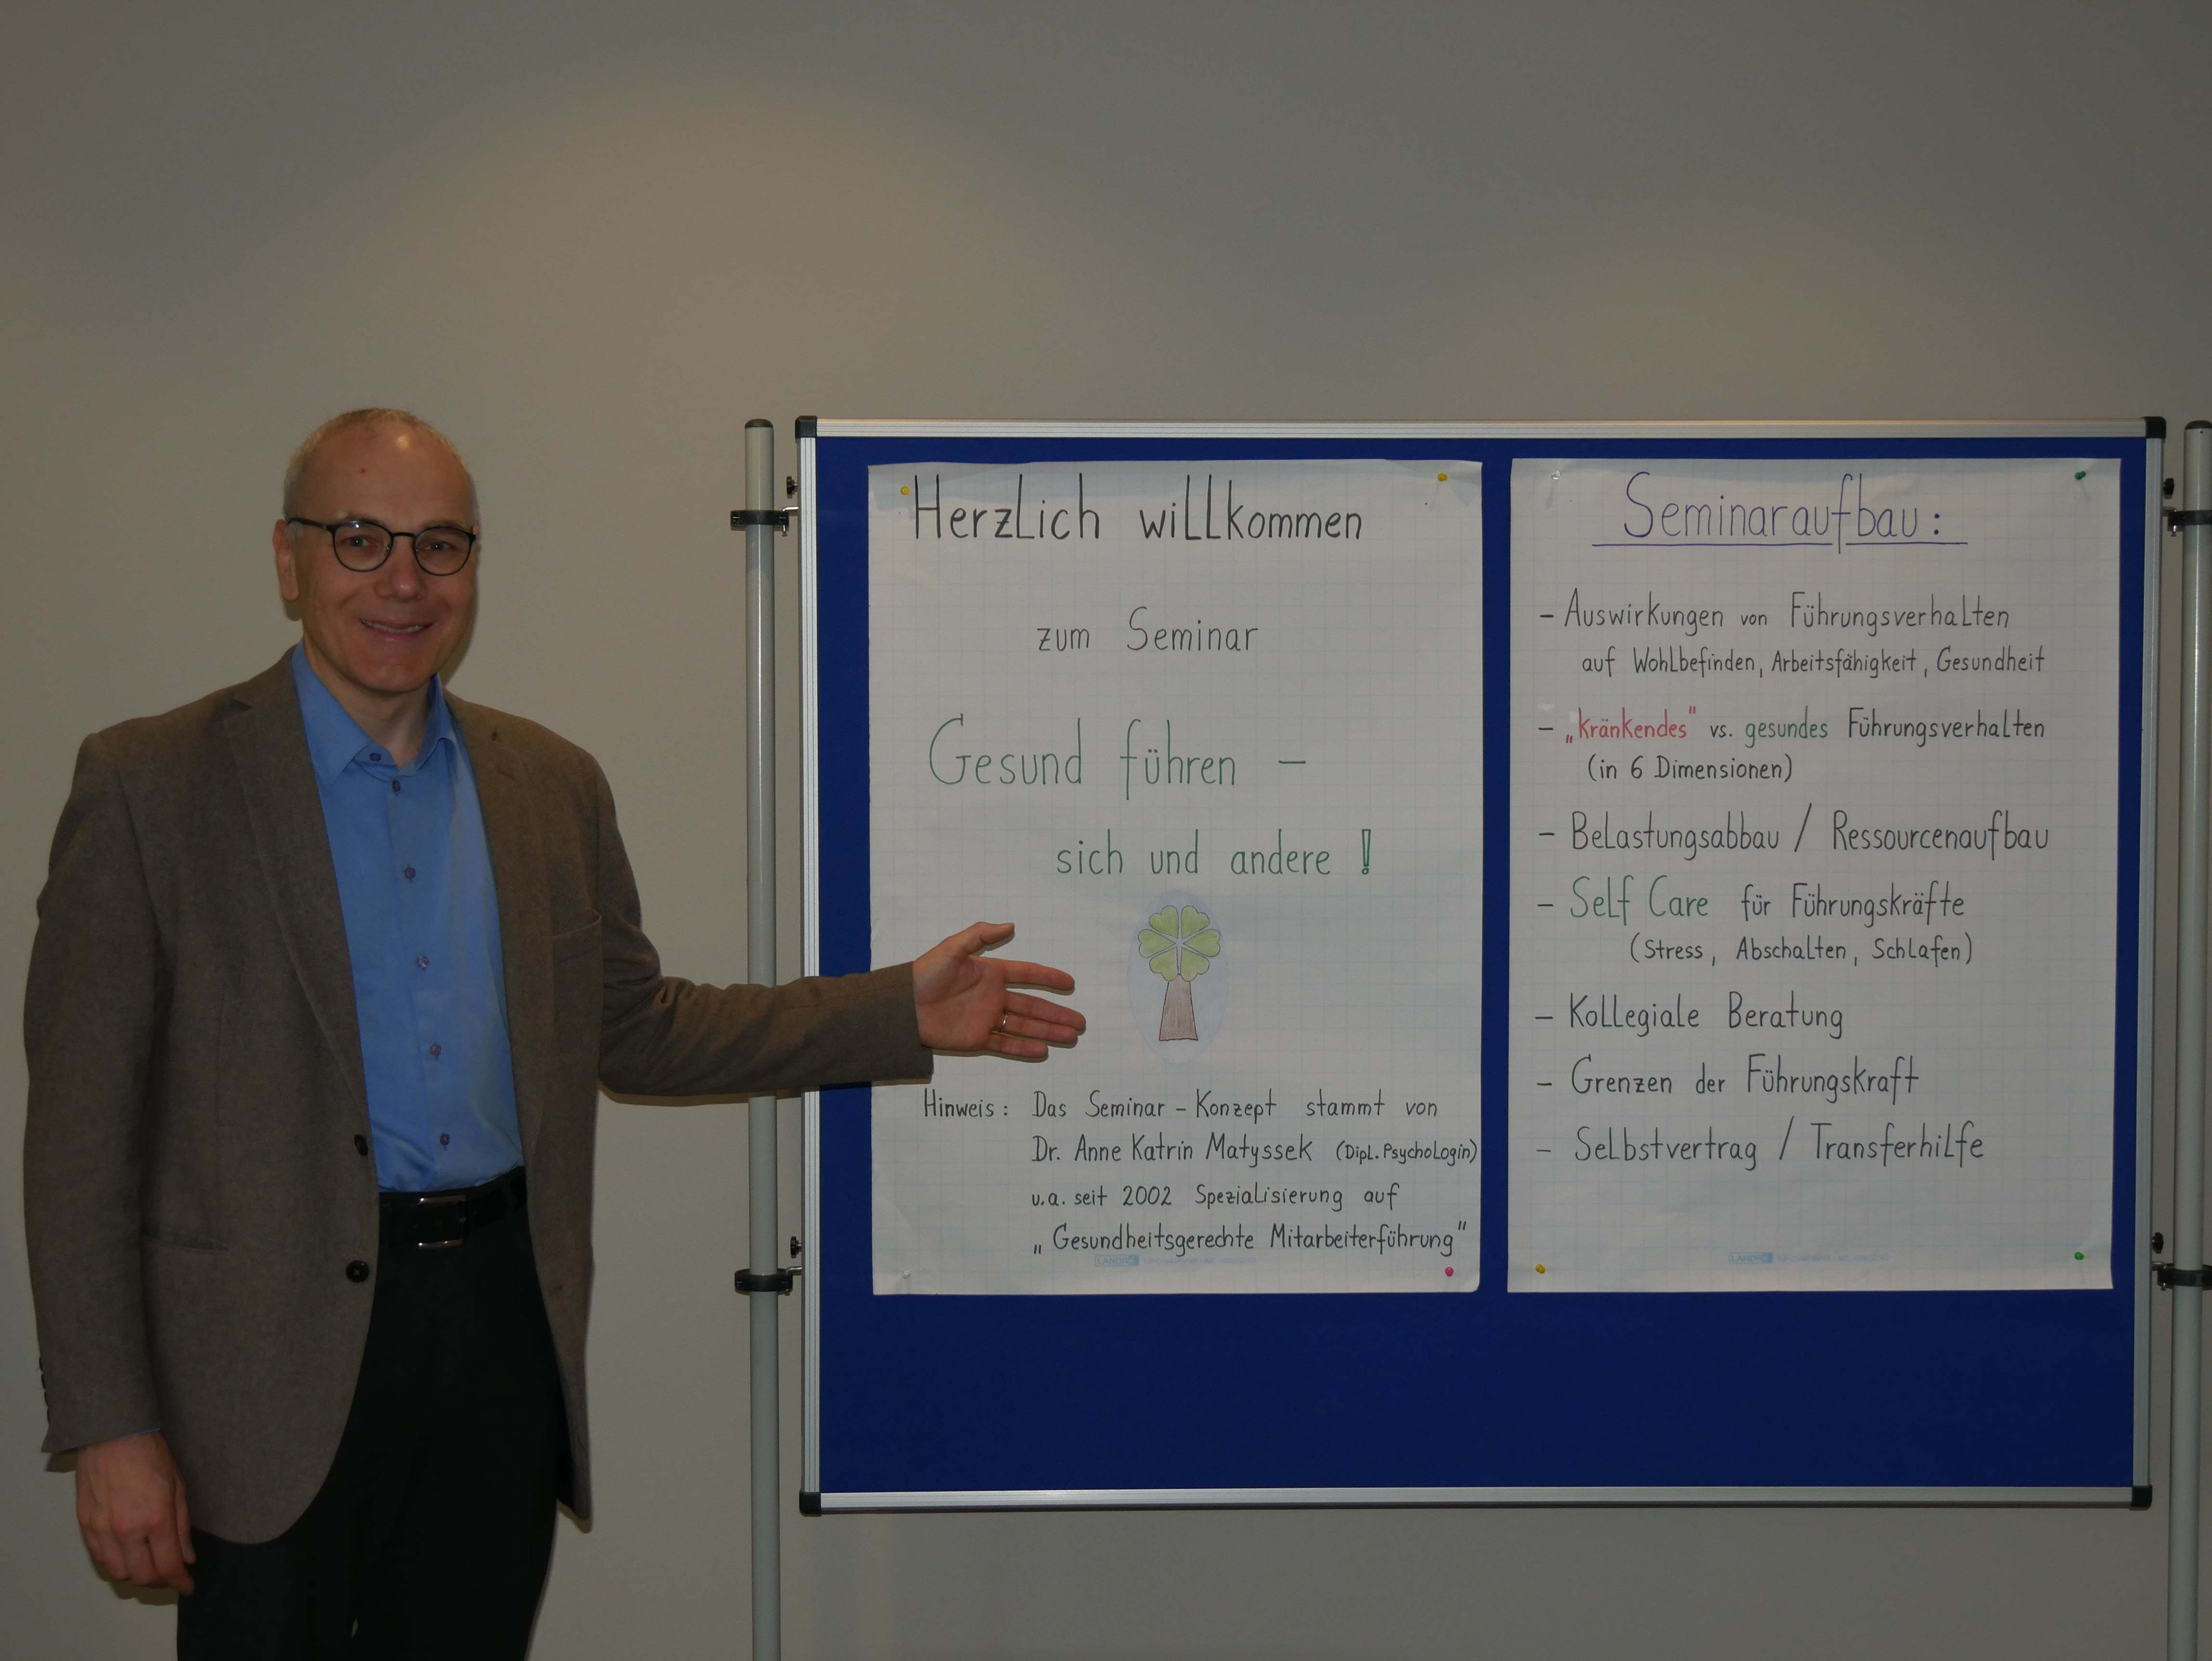 Herzlich willkommen
zum Seminar
Gesund führen –
sich und andere !
Hinweis: Das Seminar-Konzept stammt von
Dr. Anne Katrin Matyssek (Dipl. Psychologin)
u.a. seit 2002 Spezialisierung auf
„Gesundheitsgerechte Mitarbeiterführung"
LANDRÉ
Seminaraufbau:
– Auswirkungen von Führungsverhalten
auf Wohlbefinden, Arbeitsfähigkeit, Gesundheit
– „kränkendes" vs. gesundes Führungsverhalten
(in 6 Dimensionen)
– Belastungsabbau / Ressourcenaufbau
– Self Care für Führungskräfte
(Stress, Abschalten, Schlafen)
– Kollegiale Beratung
– Grenzen der Führungskraft
– Selbstvertrag / Transferhilfe
LANDRÉ